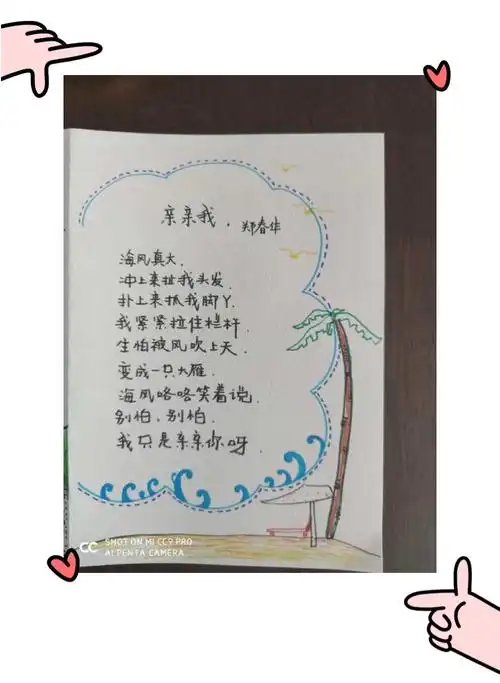 亲亲我. 郑春华
海风真大.
冲上来扯我头发.
扑上来抓我脚丫.
我紧紧拉住栏杆.
生怕被风吹上天.
变成一只大雁.
海风咯咯笑着说.
别怕、别怕.
我只是亲亲你呀.
SHOT ON MI CC9 PRO
AI PENTA CAMERA